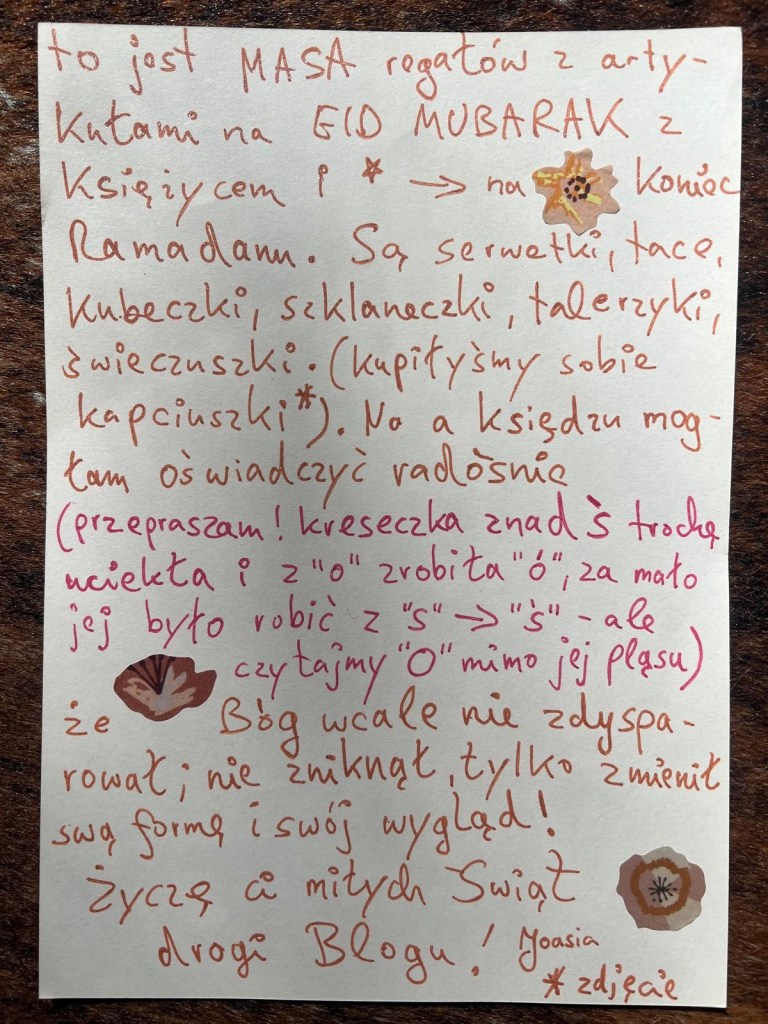 to jest MASA regałów z arty-
kułami na EID MUBARAK z
Księżycem i * → na koniec
Ramadanu. Są serwetki, tace,
kubeczki, szklaneczki, talerzyki,
świeczuszki. (kupiłyśmy sobie
kapciuszki*). No a księdzu mog-
łam oświadczyć radòśnie
(przepraszam! kreseczka znad ś trochę
uciekła i z "o" zrobiła "ó", za mało
jej było robić z "s" → "ś" - ale
czytajmy "O" mimo jej pląsu)
że Bóg wcale nie zdyspa-
rował; nie zniknął, tylko zmienił
swą formę i swój wygląd!
Życzę ci miłych Swiąt
drogi Blogu! Joasia
* zdjęcie